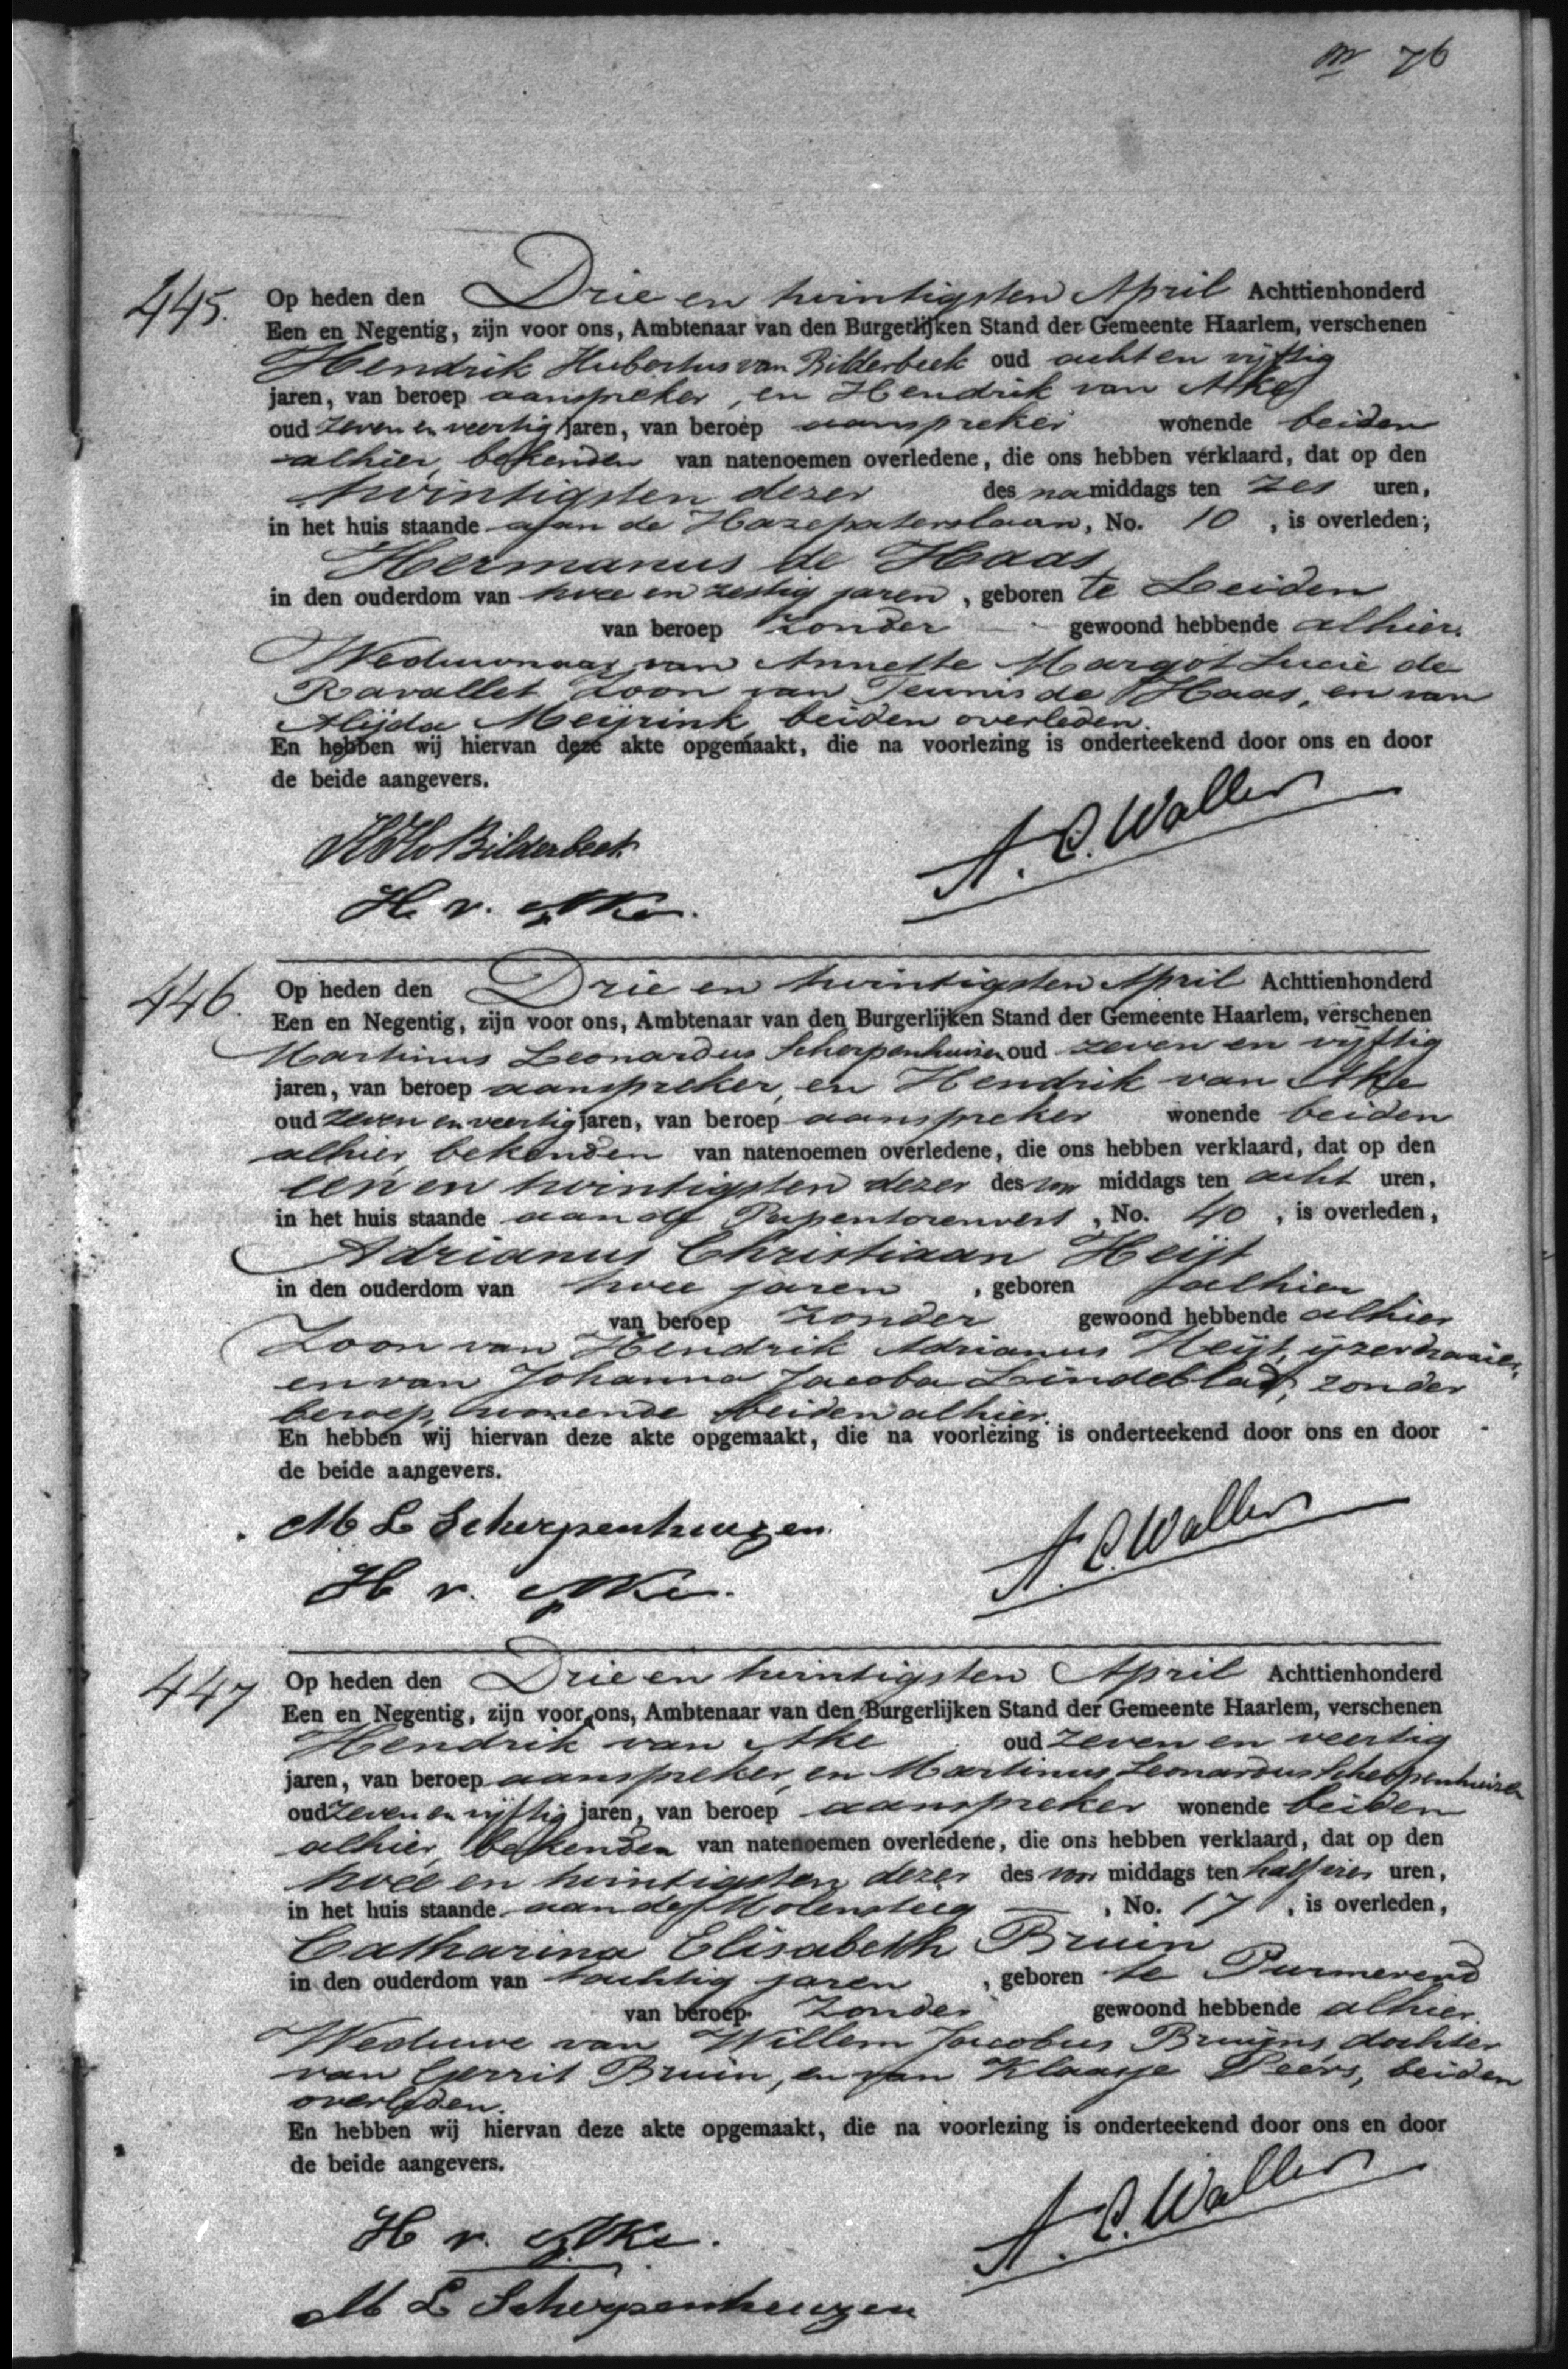 76
445. Op heden den Drie en twintigsten April Achttienhonderd
Een en Negentig, zijn voor ons, Ambtenaar van den Burgerlijken Stand der Gemeente Haarlem, verschenen
Hendrik Hubertus van Bilderbeek oud acht en vijftig
jaren, van beroep aanspreker, en Hendrik van Ake
oud zeven en veertig jaren, van beroep aanspreker wonende beiden
alhier, bekenden van natenoemen overledene, die ons hebben verklaard, dat op den
twintigsten dezer des namiddags ten zes uren,
in het huis staande aan de Hazepaterslaan, No. 10, is overleden;
Hermanus de Haas
in den ouderdom van twee en zestig jaren, geboren te Leiden
van beroep zonder gewoond hebbende alhier.
Weduwnaar van Annette Margot Lucie de
Ravallet zoon van Teunis de Haas, en van
Alijda Meijrink beiden overleden.
En hebben wij hiervan deze akte opgemaakt, die na voorlezing is onderteekend door ons en door
de beide aangevers.
HHv Bilderbeek A. C. Waller
H. v. Ake.
446. Op heden den Drie en twintigsten April Achttienhonderd
Een en Negentig, zijn voor ons, Ambtenaar van den Burgerlijken Stand der Gemeente Haarlem, verschenen
Martinus Leonardus Scherpenhuizen oud zeven en vijftig
jaren, van beroep aanspreker, en Hendrik van Ake
oud zeven en veertig jaren, van beroep aanspreker wonende beiden
alhier bekenden van natenoemen overledene, die ons hebben verklaard, dat op den
een en twintigsten dezer des voor middags ten acht uren,
in het huis staande aan de Papentorenvest, No. 40, is overleden,
Adrianus Christiaan Heijt
in den ouderdom van twee jaren, geboren alhier
van beroep zonder gewoond hebbende alhier
Zoon van Hendrik Adrianus Heijt, ijzerdraaier,
en van Johanna Jacoba Lindeblad, zonder
beroep, wonende beiden alhier.
En hebben wij hiervan deze akte opgemaakt, die na voorlezing is onderteekend door ons en door
de beide aangevers.
M L Scherpenhuizen A. C. Waller
H v. Ake.
447 Op heden den Drie en twintigsten April Achttienhonderd
Een en Negentig, zijn voor ons, Ambtenaar van den Burgerlijken Stand der Gemeente Haarlem, verschenen
Hendrik van Ake oud zeven en veertig
jaren, van beroep aanspreker, en Martinus Leonardus Scherpenhuizen
oud zeven en vijftig jaren, van beroep aanspreker wonende beiden
alhier, bekenden van natenoemen overledene, die ons hebben verklaard, dat op den
twee en twintigsten dezer des voor middags ten half vier uren,
in het huis staande aan de Molensteeg, No. 17, is overleden,
Catharina Elisabeth Bruin
in den ouderdom van tachtig jaren, geboren te Purmerend
van beroep zonder gewoond hebbende alhier.
Weduwe van Willem Jacobus Bruijns dochter
van Gerrit Bruin, en van Klaasje Peers, beiden
overleden.
En hebben wij hiervan deze akte opgemaakt, die na voorlezing is onderteekend door ons en door
de beide aangevers.
H v. Ake. A. C. Waller
M L Scherpenhuizen